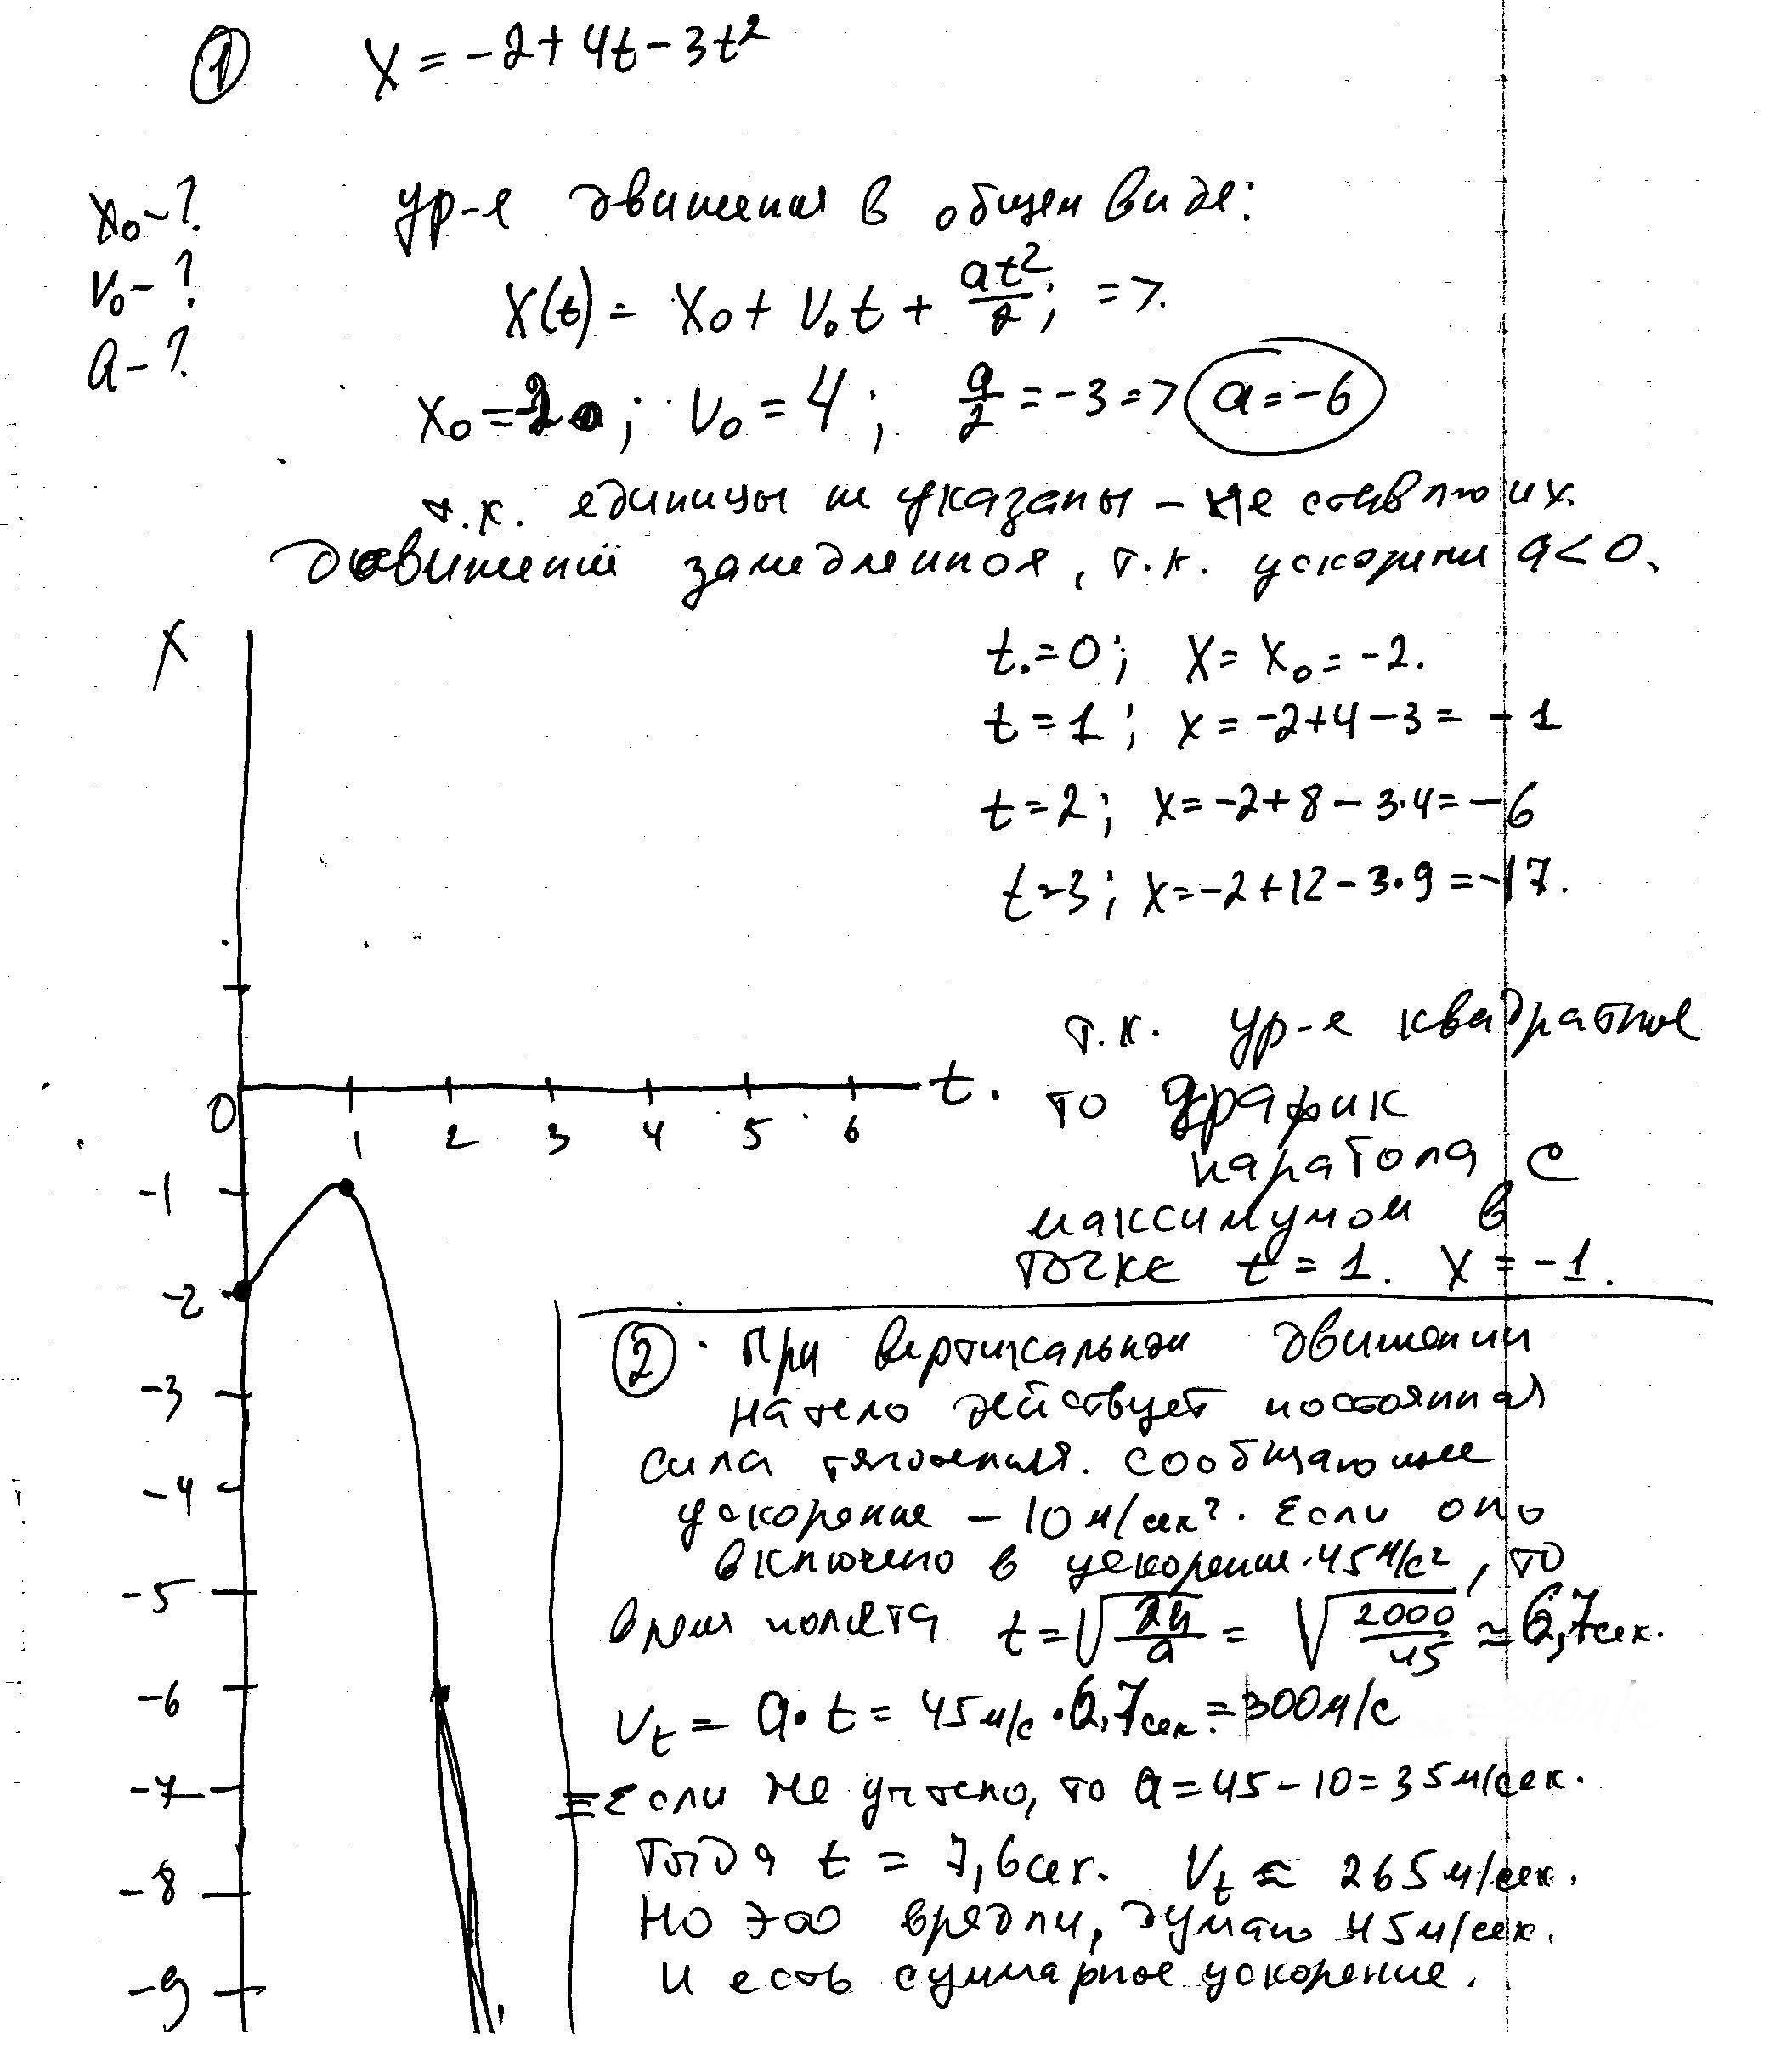 1 X = -2 + 4t - 3t²
x₀ - ?
v₀ - ?
a - ?
ур-е движения в общем виде:
X(t) = X₀ + V₀t + at²/2; =>
x₀ = -2; v₀ = 4; a/2 = -3 => a = -6
т.к. единицы не указаны - не ставлю их.
движение замедленное, т.к. ускорение a < 0.
t = 0; X = X₀ = -2.
t = 1; x = -2+4-3 = -1
t = 2; x = -2+8-3·4 = -6
t = 3; x = -2+12-3·9 = -17.
X
0
t.
1 2 3 4 5 6
-1
-2
-3
-4
-5
-6
-7
-8
-9
т.к. ур-е квадратное
то график
парабола с
максимумом в
точке t = 1. X = -1.
2 · При вертикальном движении
на тело действует постоянная
сила тяготения. сообщающее
ускорение - 10 м/сек². Если оно
включено в ускорение 45 м/с², то
время полёта t = √2H/a = √2000/45 ≈ 6,7сек.
Vt = a·t = 45 м/с · 6,7сек. = 300 м/с
Если не учтено, то a = 45 - 10 = 35 м/сек.
Тогда t = 7,6 сек. Vt ≈ 265 м/сек.
Но это врядли, думаю 45 м/сек.
и есть суммарное ускорение.